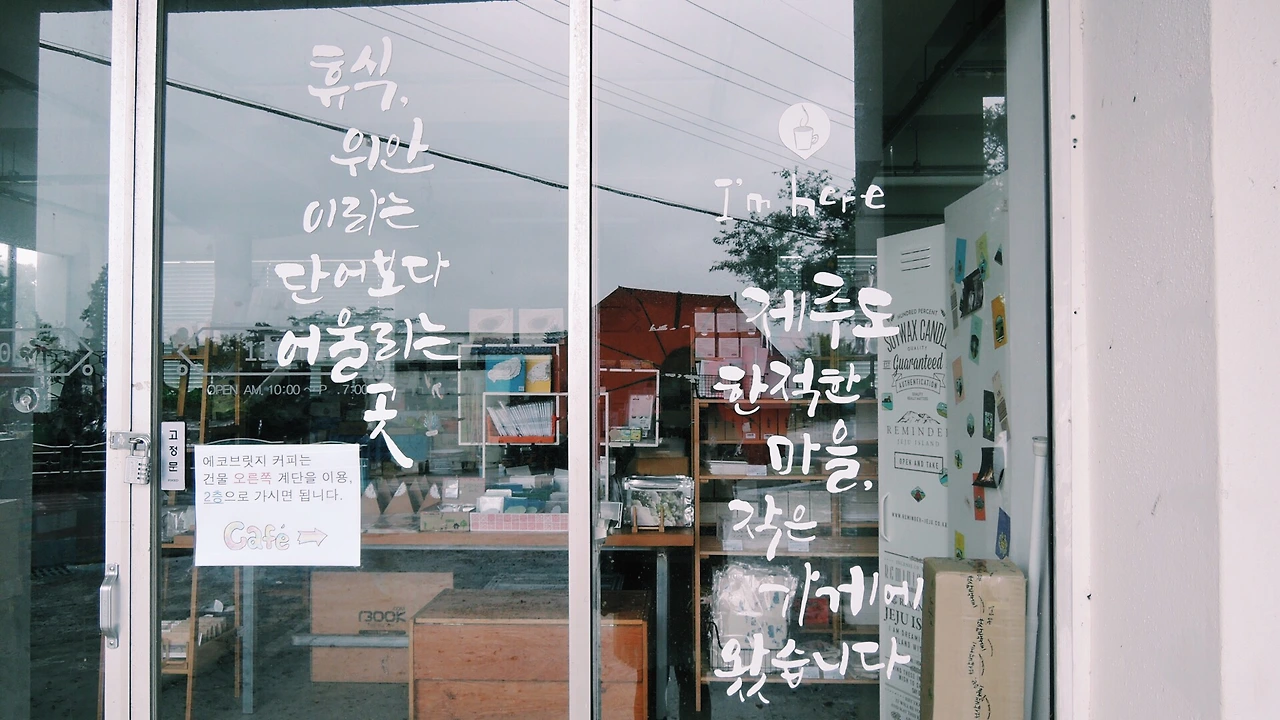 휴식,
위안
이라는
단어보다
어울리는
곳
I'm here
제주도
한적한
마을,
작은
가게에
왔습니다
OPEN AM. 10:00
7:00
고정문
에코브릿지 커피는
건물 오른쪽 계단을 이용,
2층으로 가시면 됩니다.
Café
BOOK
HUNDRED PERCENT
SOYWAX CANDL
QUALITY
Guaranteed
AUTHENTICATION
REMINDE
JEJU ISLAND
OPEN AND TAKE
JEJU IS